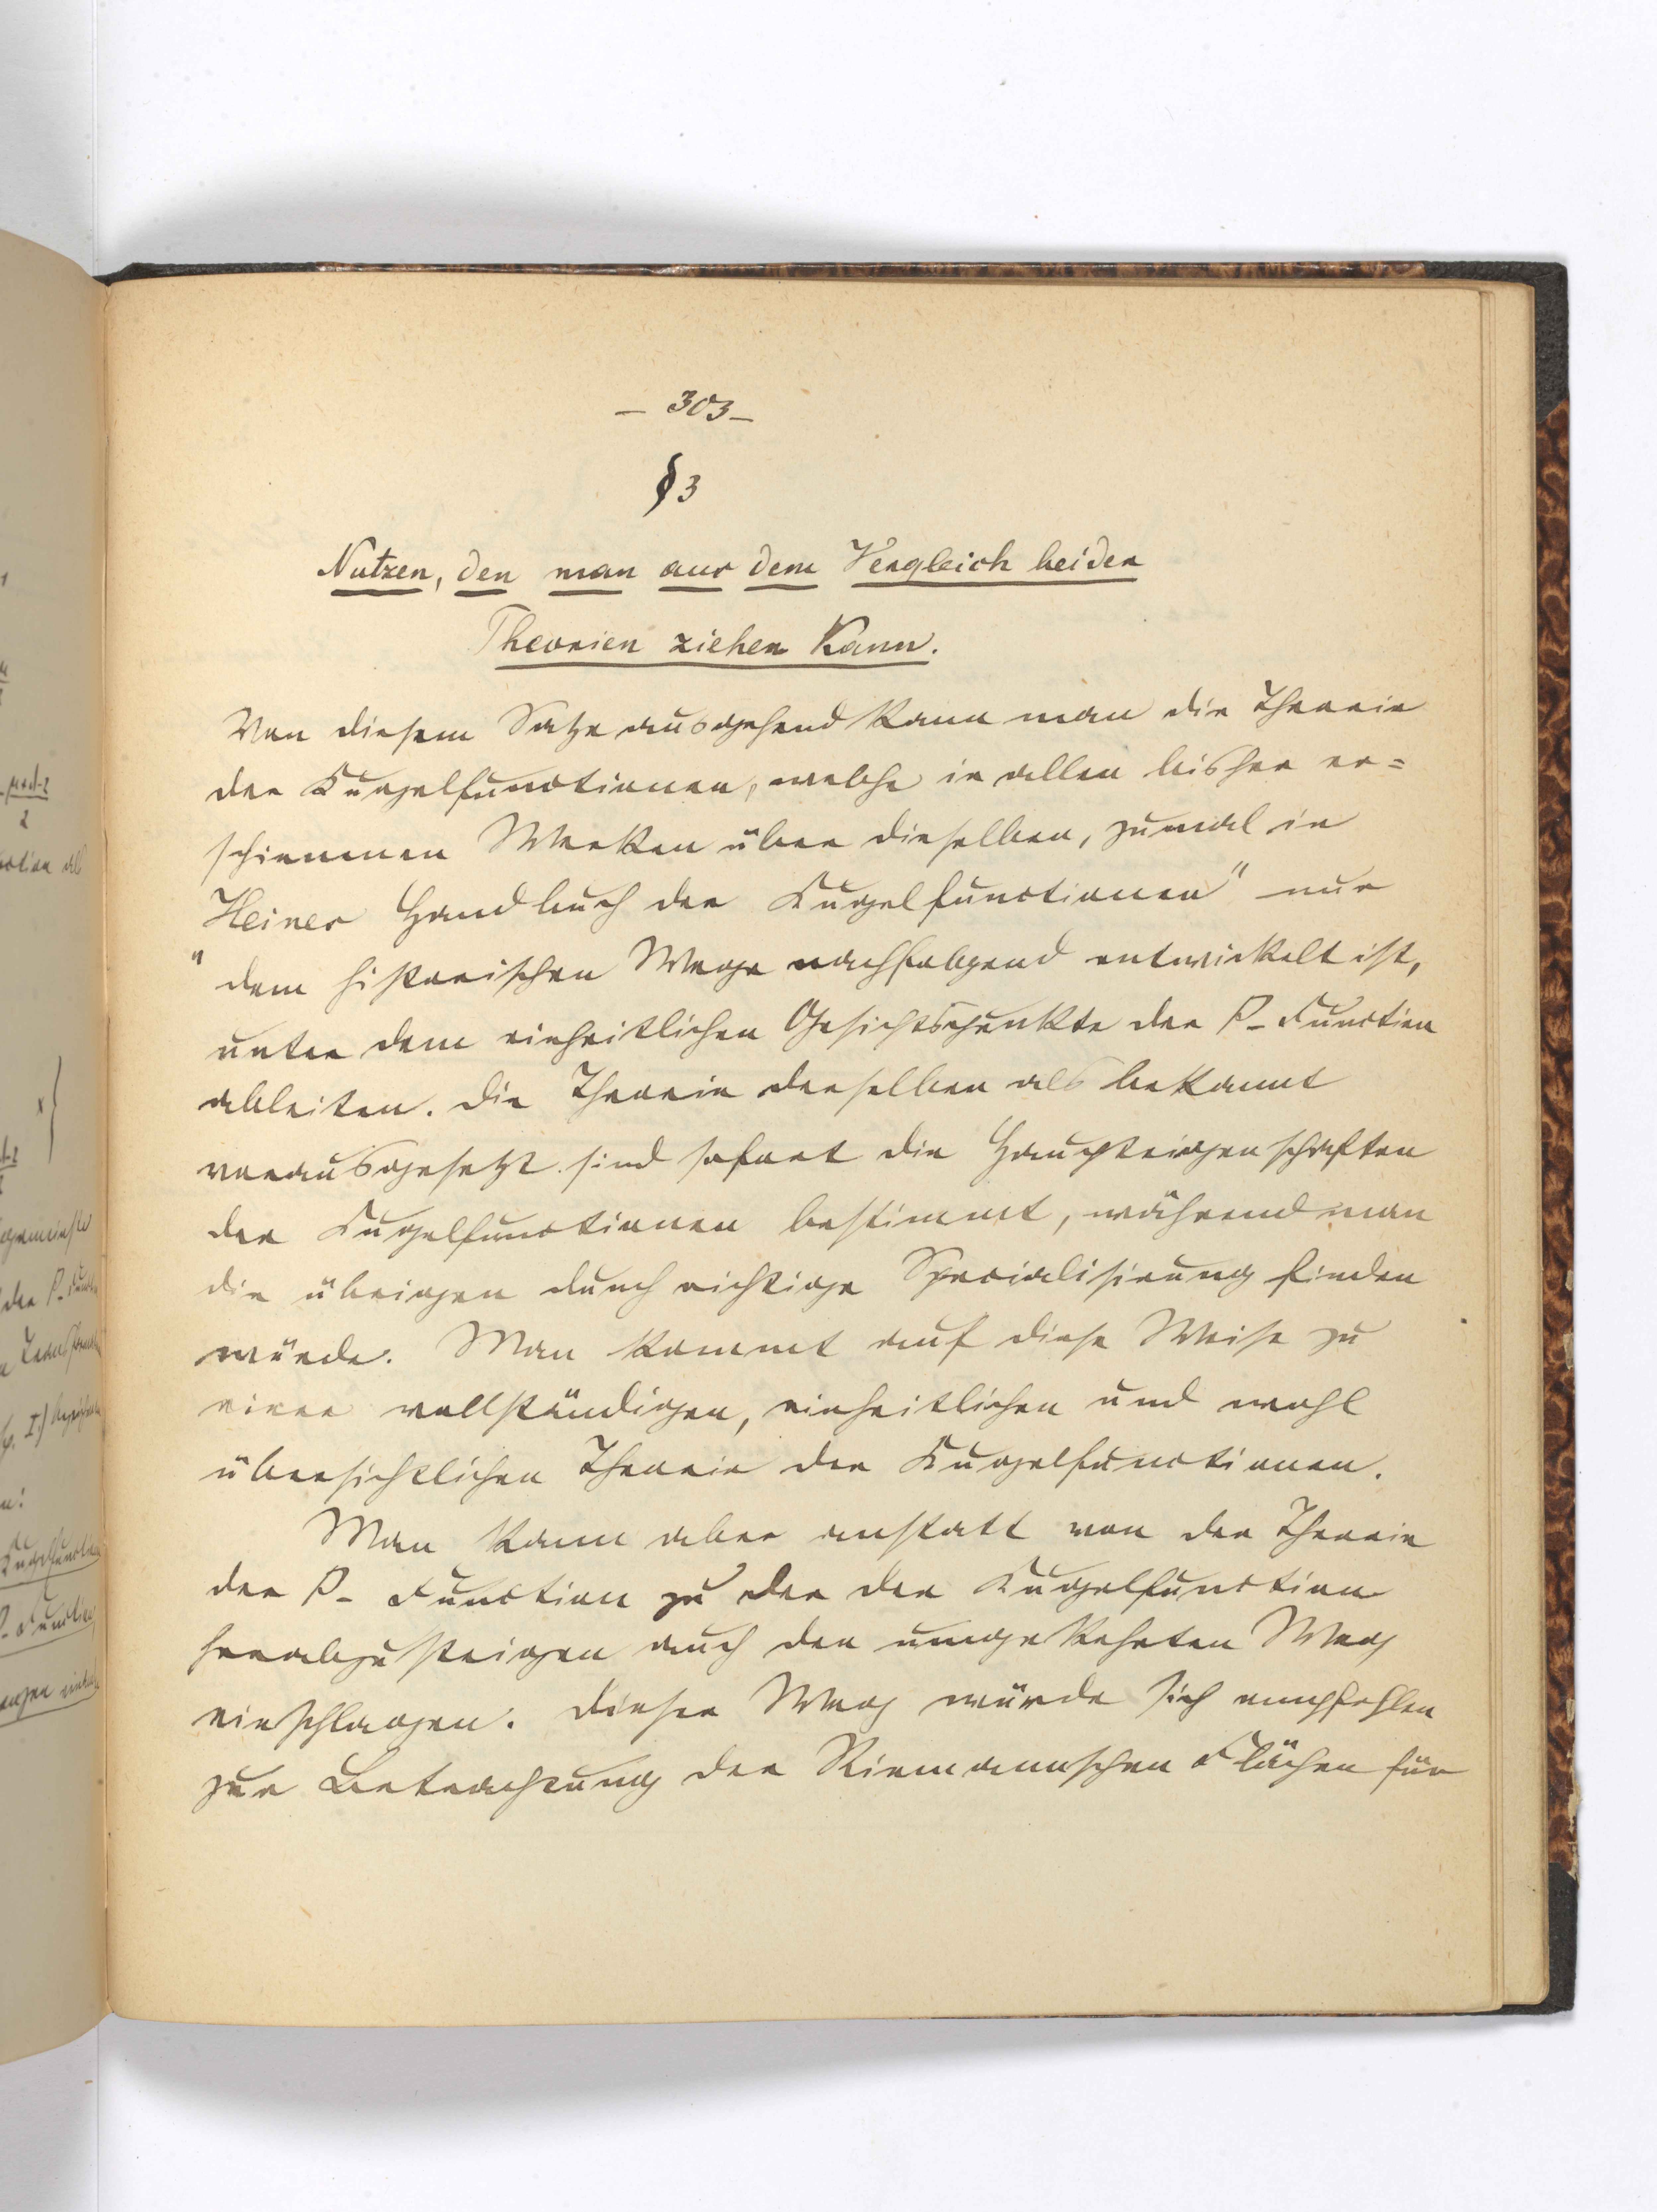 – 303 –
§ 3
Nutzen, den man aus dem Vergleich beider
Theorien ziehen kann.
Von diesem Satze ausgehend kann man die Theorie
der Kugelfunctionen, welche in allen bisher er=
schienenen Werken über dieselben, zumal in
Heines Handbuch der Kugelfunctionen" nur
" dem historischen Wege nachfolgend entwickelt ist,
unter dem einheitlichen Gesichtspunkte der P- Function
ableiten. Die Theorie derselben als bekannt
vorausgesetzt sind sofort die Haupteigenschaften
der Kugelfunctionen bestimmt, während man
die übrigen durch richtige Specialisirung finden
würde. Man kommt auf diese Weise zu
einer vollständigen, einheitlichen und wohl
übersichtlichen Theorie der Kugelfunctionen.
Man kann aber anstatt von der Theorie
der P- Function zu der der Kugelfunction
herabzusteigen auch den umgekehrten Weg
einschlagen. Dieser Weg würde sich empfehlen
zur Betrachtung der Riemannschen Flächen für